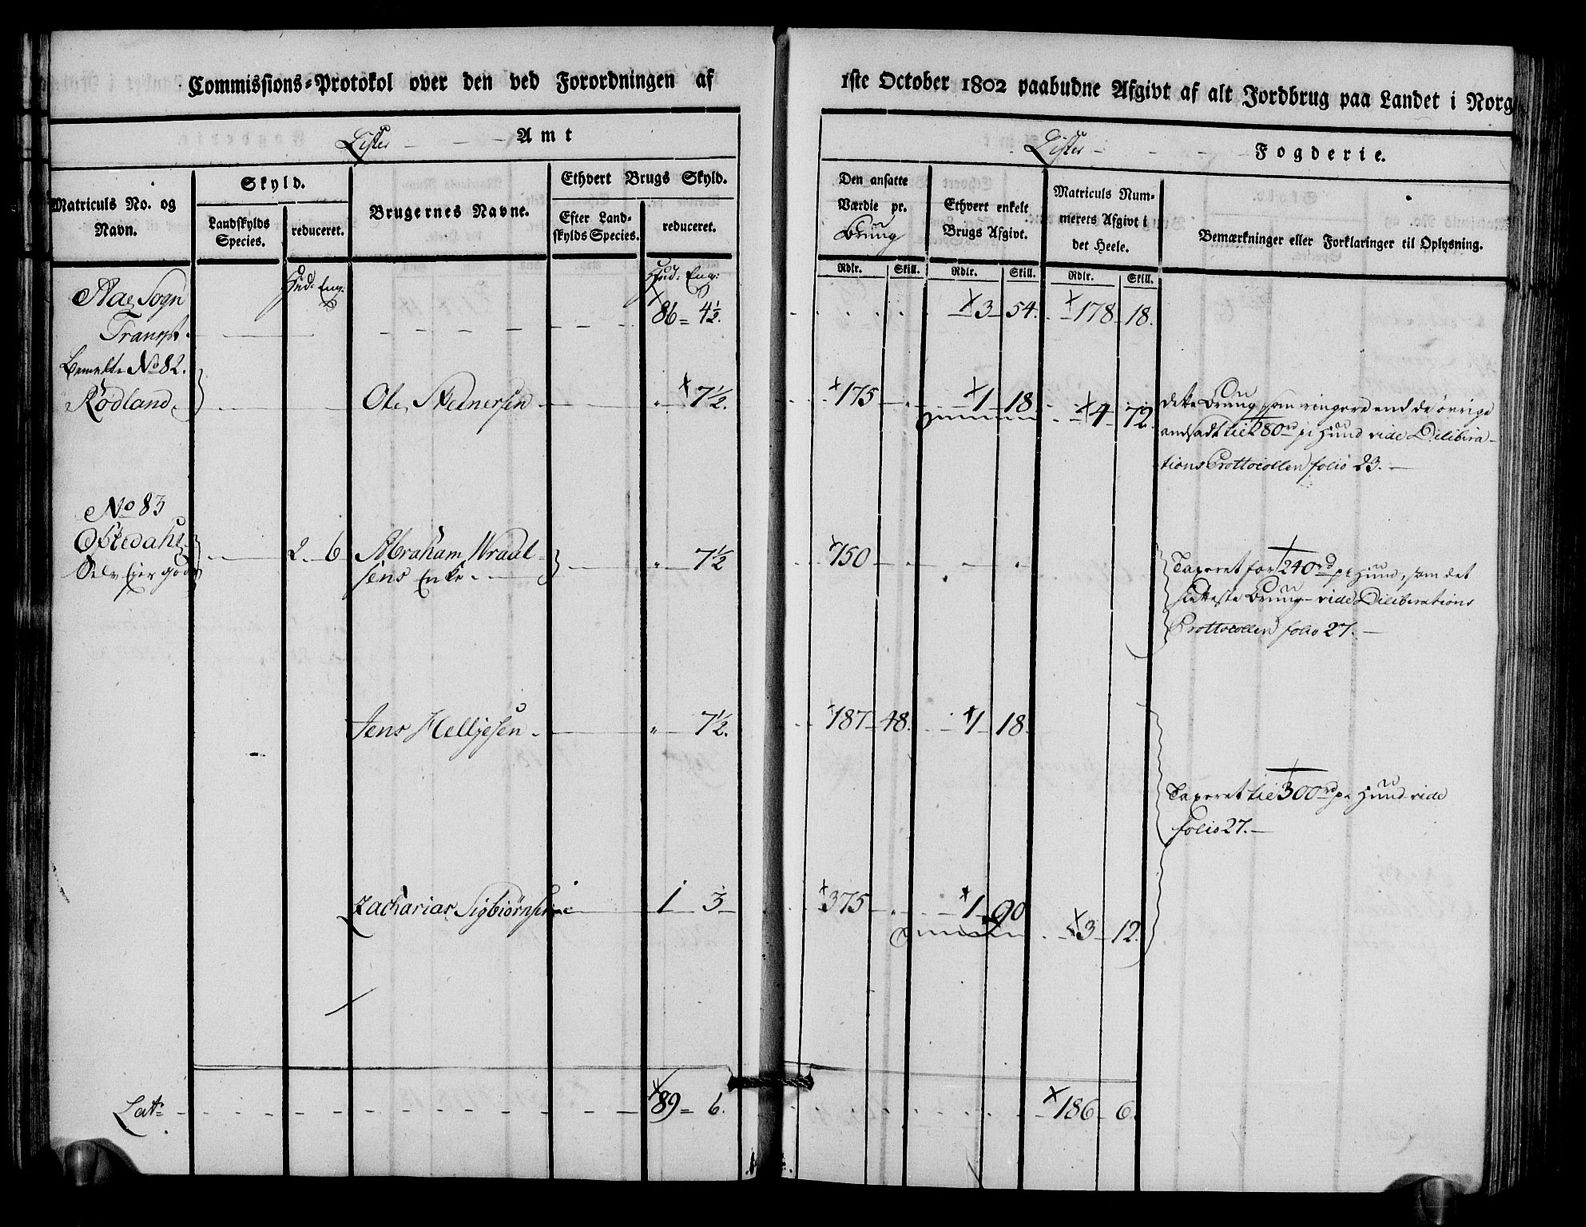 Commissions-Protokol over den ved Forordningen af
1ste October 1802 paabudne Afgivt af alt Jordbrug paa Landet i Norg
Lister Amt
Lister Fogderie.
Matriculs No. og Navn.
Skyld.
Landskylds Species.
reduceret.
Brugernes Navne.
Ethvert Brugs Skyld.
Efter Landskylds Species.
reduceret.
Den ansatte Værdie pr. Bruug
Ethvert enkelt Brugs Afgivt.
Matriculs Nummerets Afgivt i det Heele.
Bemærkninger eller Forklaringer til Oplysning.
Rdlr. Skill. Rdlr. Skill. Rdlr. Skill.
Hud: Eng: Hud: Eng:
Aae Sogn
Transpt. 86 4½. 13 54. 178 18.
Bemelte No 82.
Rødland Ole 7½. 175 1 18. 4 72.
dette Bruug som ringere end de øvrige
andsadt til 280 rd pr Hund vide Delibera-
tions Prottocollen folio 23.
No 83
Ostedahl 2 6 Abraham Wraal- 7½ 150
Selv Ejer Gods sens Enke.
Taxeret for 240 rd pr Hund, som det
sletteste Bruug vide Deliberations
Prottocollen folio 27.
Jens Helljesen 7½. 187 48. 1 18.
Taxeret til 300 rd pr Hund vide
folio 27.
Zacharias Sigbiørnsen 1 3 375 1 90 3 12.
Lat: 89 6. 186 6.